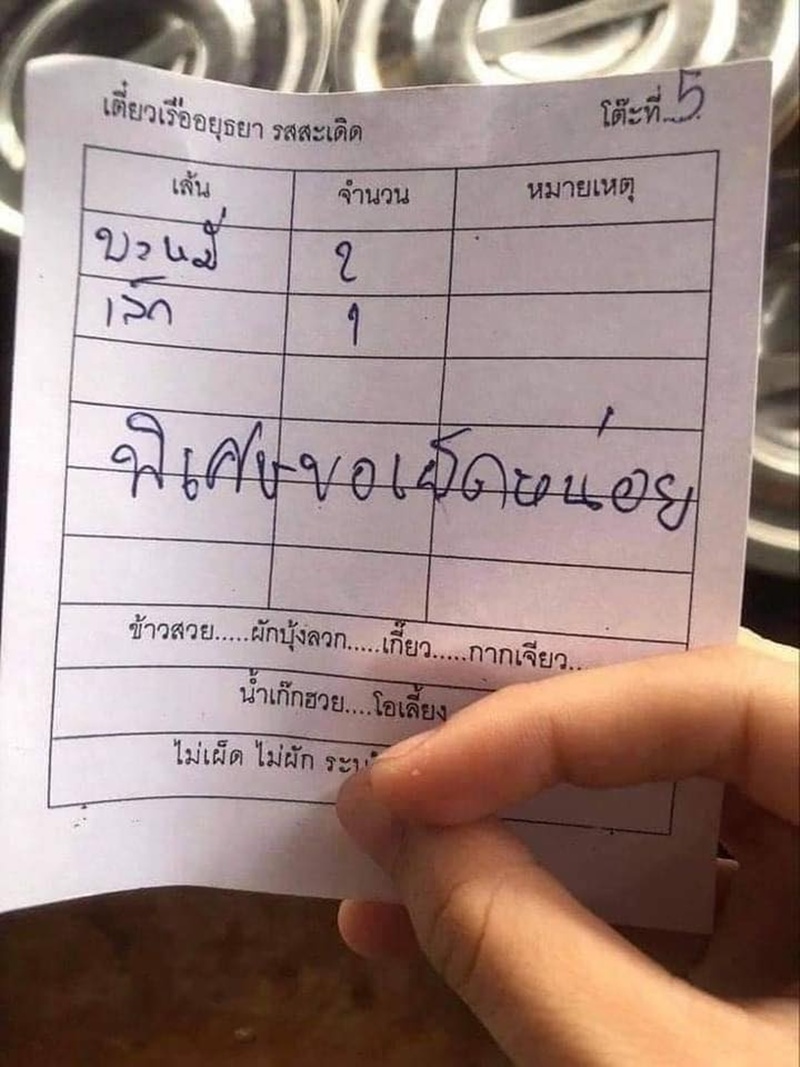 เตี๋ยวเรืออยุธยา รสสะเดิด โต๊ะที่...5
เส้น จำนวน หมายเหตุ
บะหมี่ 2
เล็ก 1
พิเศษขอเผ็ดหน่อย
ข้าวสวย.....ผักบุ้งลวก.....เกี๊ยว.....กากเจียว...
น้ำเก๊กฮวย....โอเลี้ยง
ไม่เผ็ด ไม่ผัก